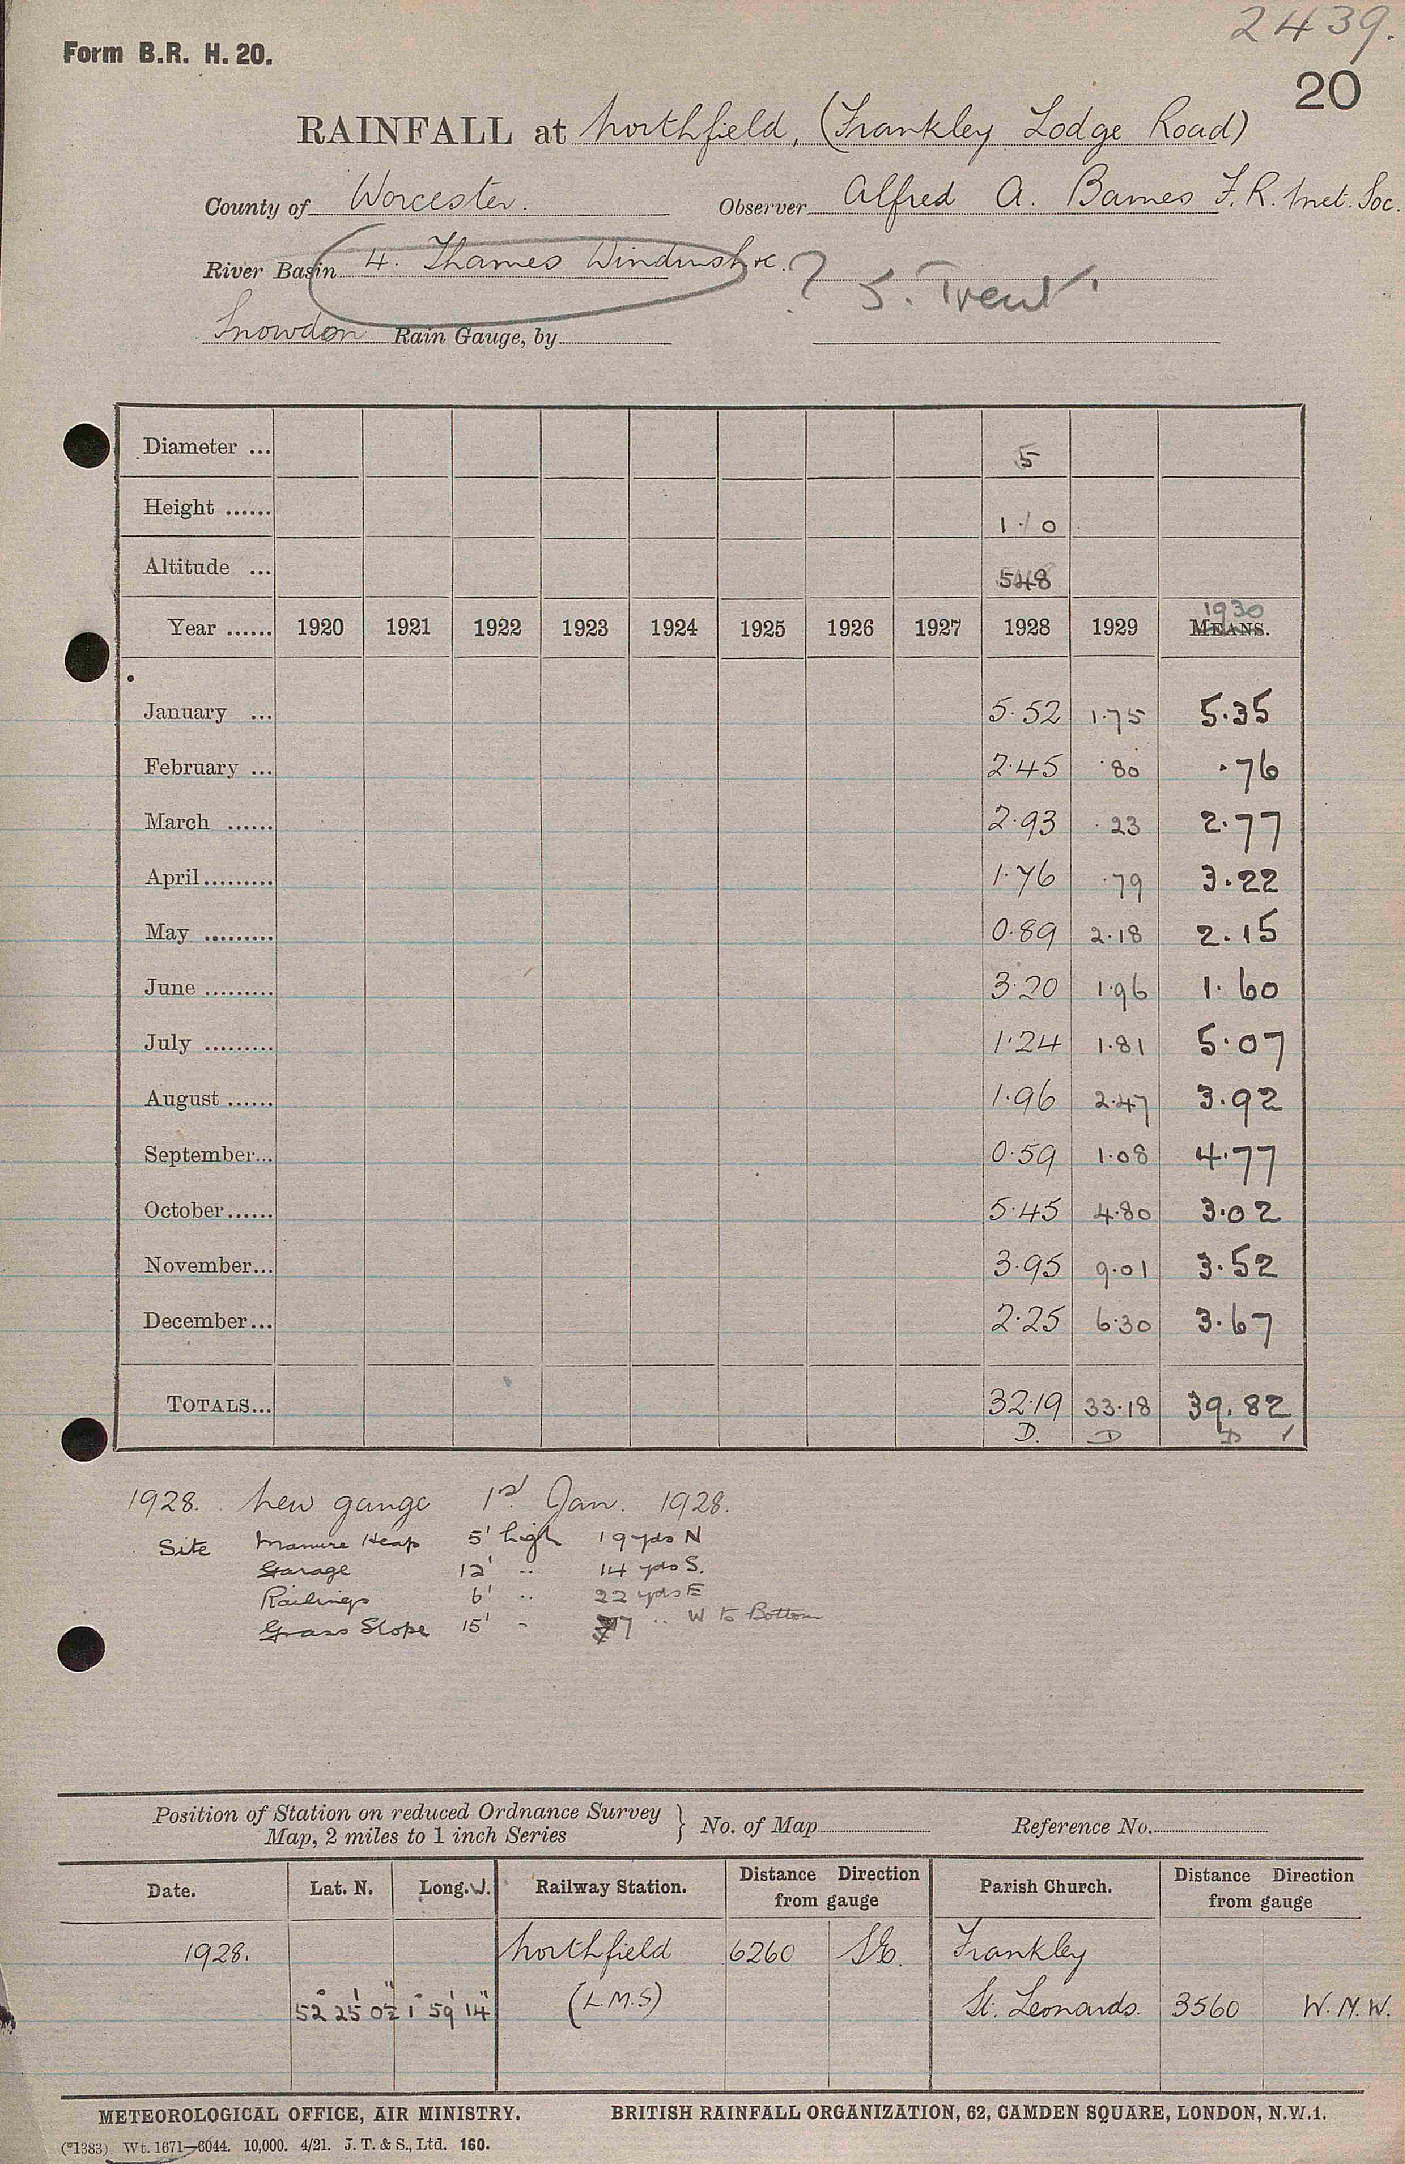 2439.
Form B.R. H. 20.
20
RAINFALL at Northfield, (Frankley Lodge Road)
County of Worcester. Observer Alfred A. Barnes F.R. Met. Soc.
River Basin 4. Thames Windrush &c. ? 5. Trent.
Snowdon Rain Gauge, by
Diameter ... 5
Height ...... 1·0
Altitude ... 548
1930
Year ...... 1920 1921 1922 1923 1924 1925 1926 1927 1928 1929 MEANS.
January ... 5·52 1·75 5·35
February ... 2·45 ·80 ·76
March ...... 2·93 ·23 2·77
April ......... 1·76 ·79 3·22
May ......... 0·89 2·18 2·15
June ......... 3·20 1·96 1·60
July ......... 1·24 1·81 5·07
August ...... 1·96 2·47 3·92
September... 0·59 1·08 4·77
October ...... 5·45 4·80 3·02
November... 3·95 9·01 3·52
December... 2·25 6·30 3·67
TOTALS... 32·19 33·18 39·82
D. D D
1928. New gauge 1st Jan. 1928.
Site Manure Heap 5' high 19 yds N
Garage 12' .. 14 yds S.
Railings 6' .. 22 yds E
Grass Slope 15' .. 7 .. W to Bottom
Position of Station on reduced Ordnance Survey
Map, 2 miles to 1 inch Series } No. of Map Reference No.
Date. Lat. N. Long. W. Railway Station. Distance Direction from gauge Parish Church. Distance Direction from gauge
1928. Northfield 6260 S.E. Frankley
52° 25' 02" 1° 59' 14" (L.M.S) St. Leonards. 3560 W.N.W.
METEOROLOGICAL OFFICE, AIR MINISTRY. BRITISH RAINFALL ORGANIZATION, 62, CAMDEN SQUARE, LONDON, N.W.1.
(*1383) Wt. 1671—6044. 10,000. 4/21. J. T. & S., Ltd. 160.